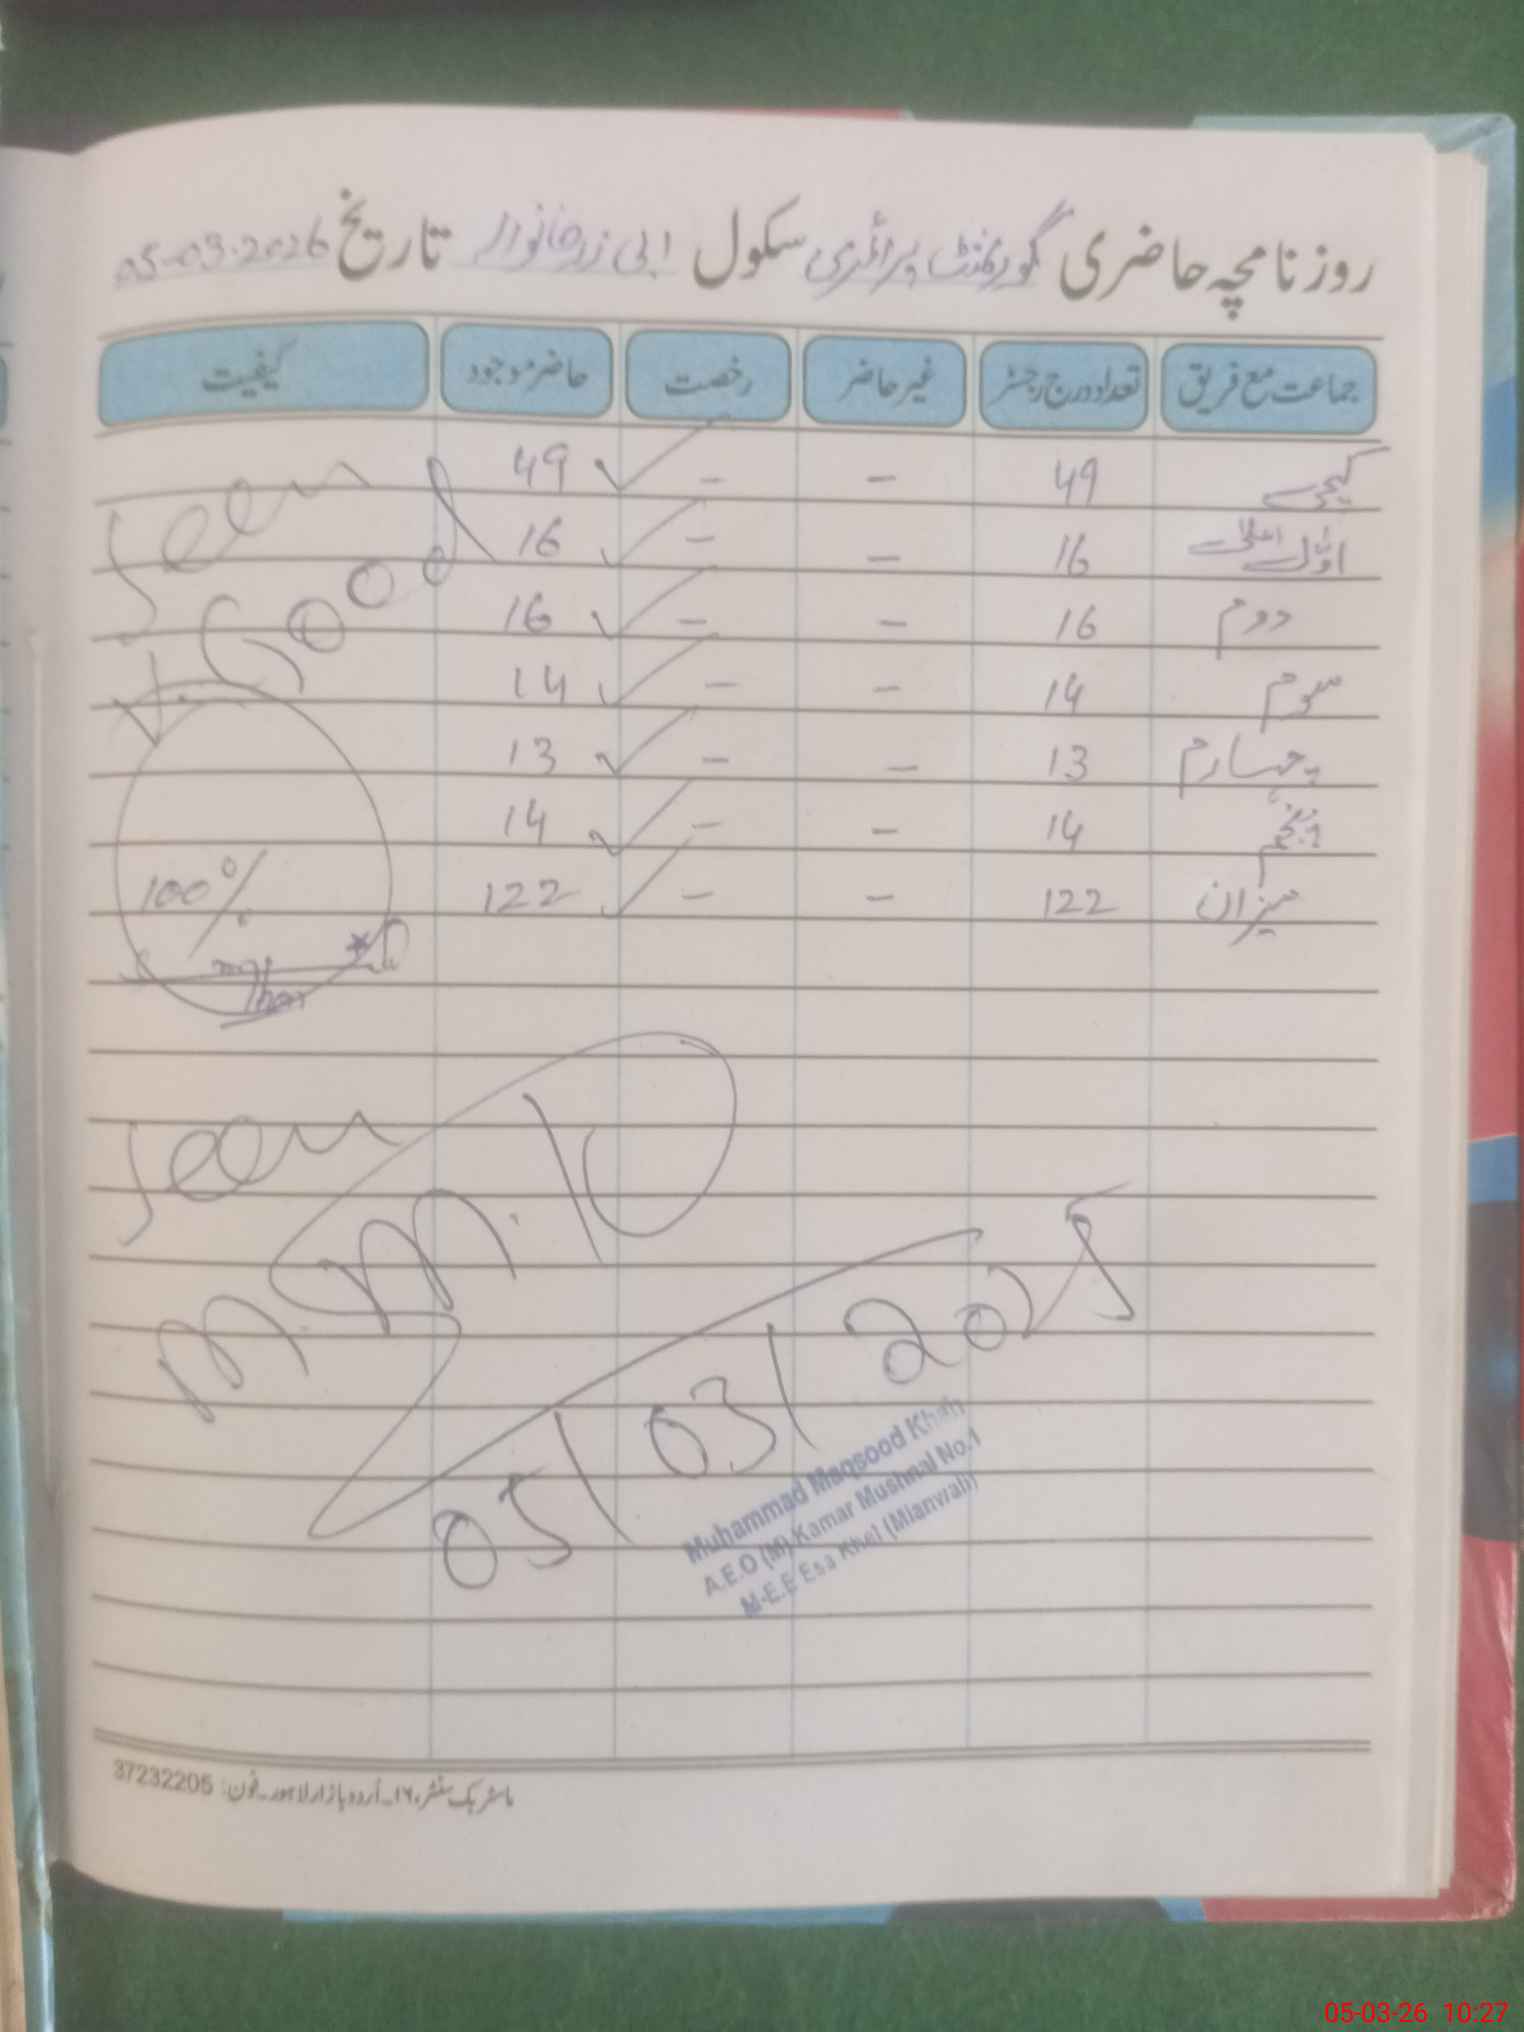 روزنامچہ حاضری گورنمنٹ پرائمری سکول ابی زر خانوالہ تاریخ 05-03-2026
جماعت مع فریق تعداد درج رجسٹر غیر حاضر رخصت حاضر موجود کیفیت
کچی 49 - - 49
اوّل اعلیٰ 16 - - 16
دوم 16 - - 16
سوم 14 - - 14
چہارم 13 - - 13
پنجم 14 - - 14
میزان 122 - - 122
Seen
V. Good
100%
Seen
05/03/202
Muhammad Maqsood Khan
A.E.O (M) Kamar Mushnai No.1
M-E.E Esa Khel (Mianwali)
ماسٹر بک سنٹر، ۱۶۔اُردو بازار لاہور۔ فون: 37232205
05-03-26 10:27